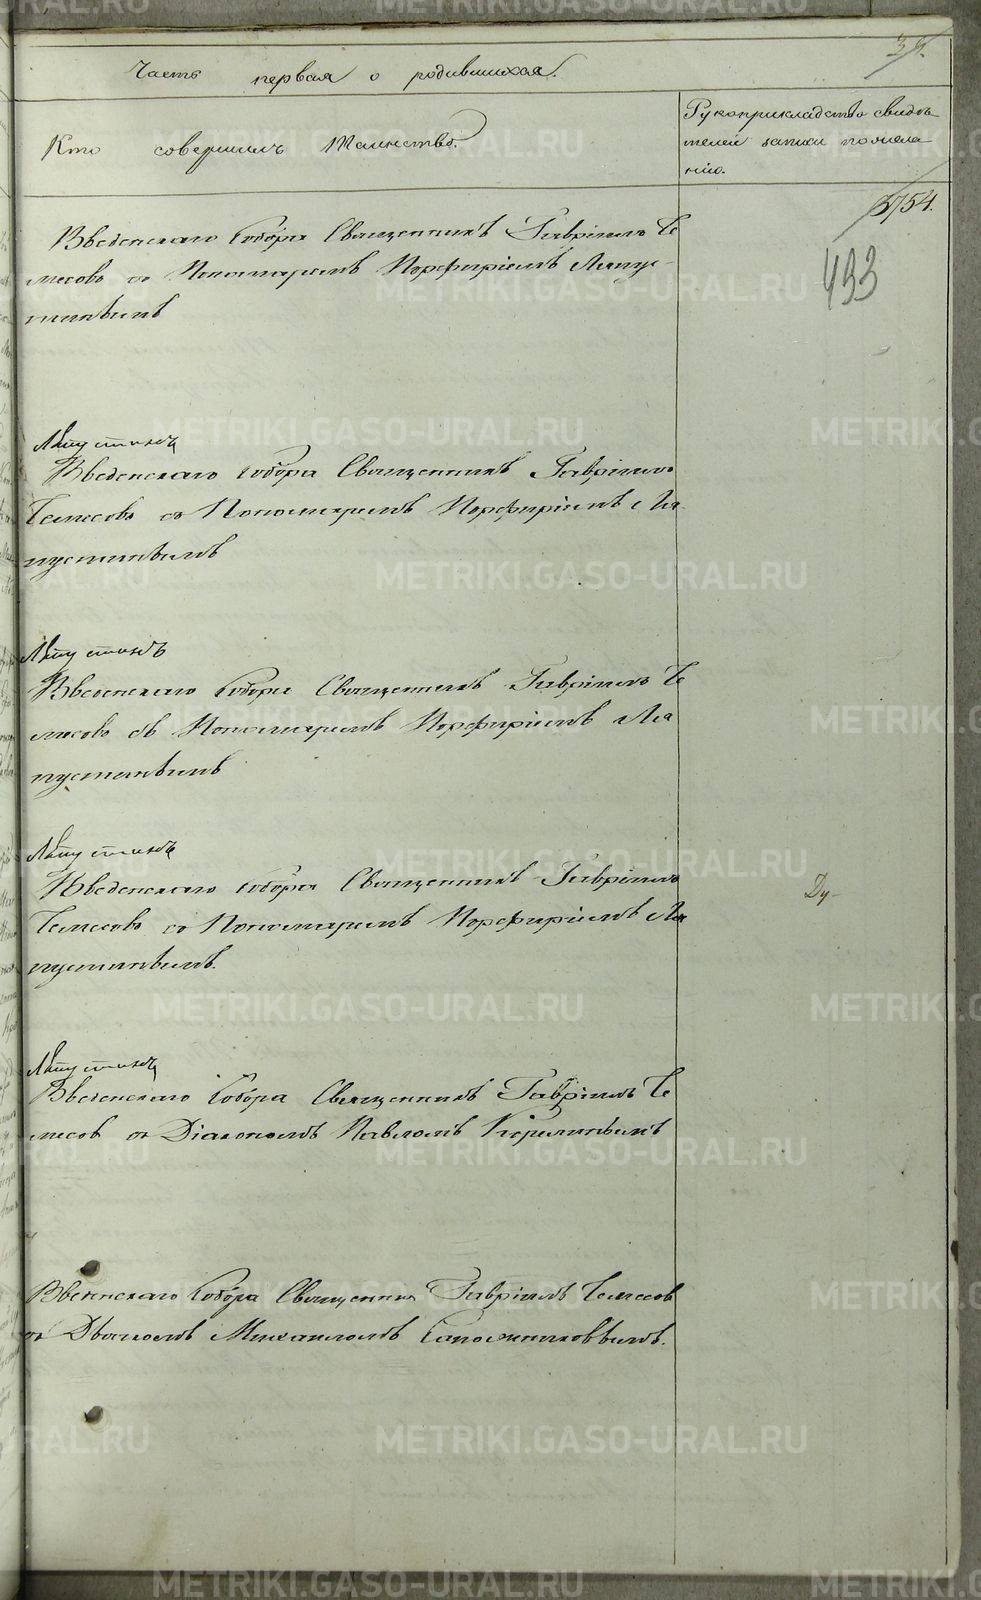 39.
Часть первая о родившихся.
Кто совершилъ таинство.
Рукоприкладство свидѣ-
телей записи по жела-
нію.
5754.
433
Введенскаго Собора Священникъ Гавріилъ Те
месовъ съ Пономаремъ Порфиріемъ Лапус-
тинымъ
Лапустинъ
Введенскаго Собора Священникъ Гавріилъ
Темесовъ съ Пономаремъ Порфиріемъ Ла
пустинымъ
Лапустинъ
Введенскаго Собора Священникъ Гавріилъ Те
месовъ съ Пономаремъ Порфиріемъ Ла
пустинымъ
Лапустинъ
Введенскаго Собора Священникъ Гавріилъ
Темесовъ съ Пономаремъ Порфиріемъ Ла
пустинымъ.
Ду-
Лапустинъ
Введенскаго Собора Священникъ Гавріилъ Те
месов съ Діакономъ Павломъ
Введенскаго Собора Священник Гавріилъ Темесов
съ Михаиломъ Сапожниковымъ.
METRIKI.GASO-URAL.RU